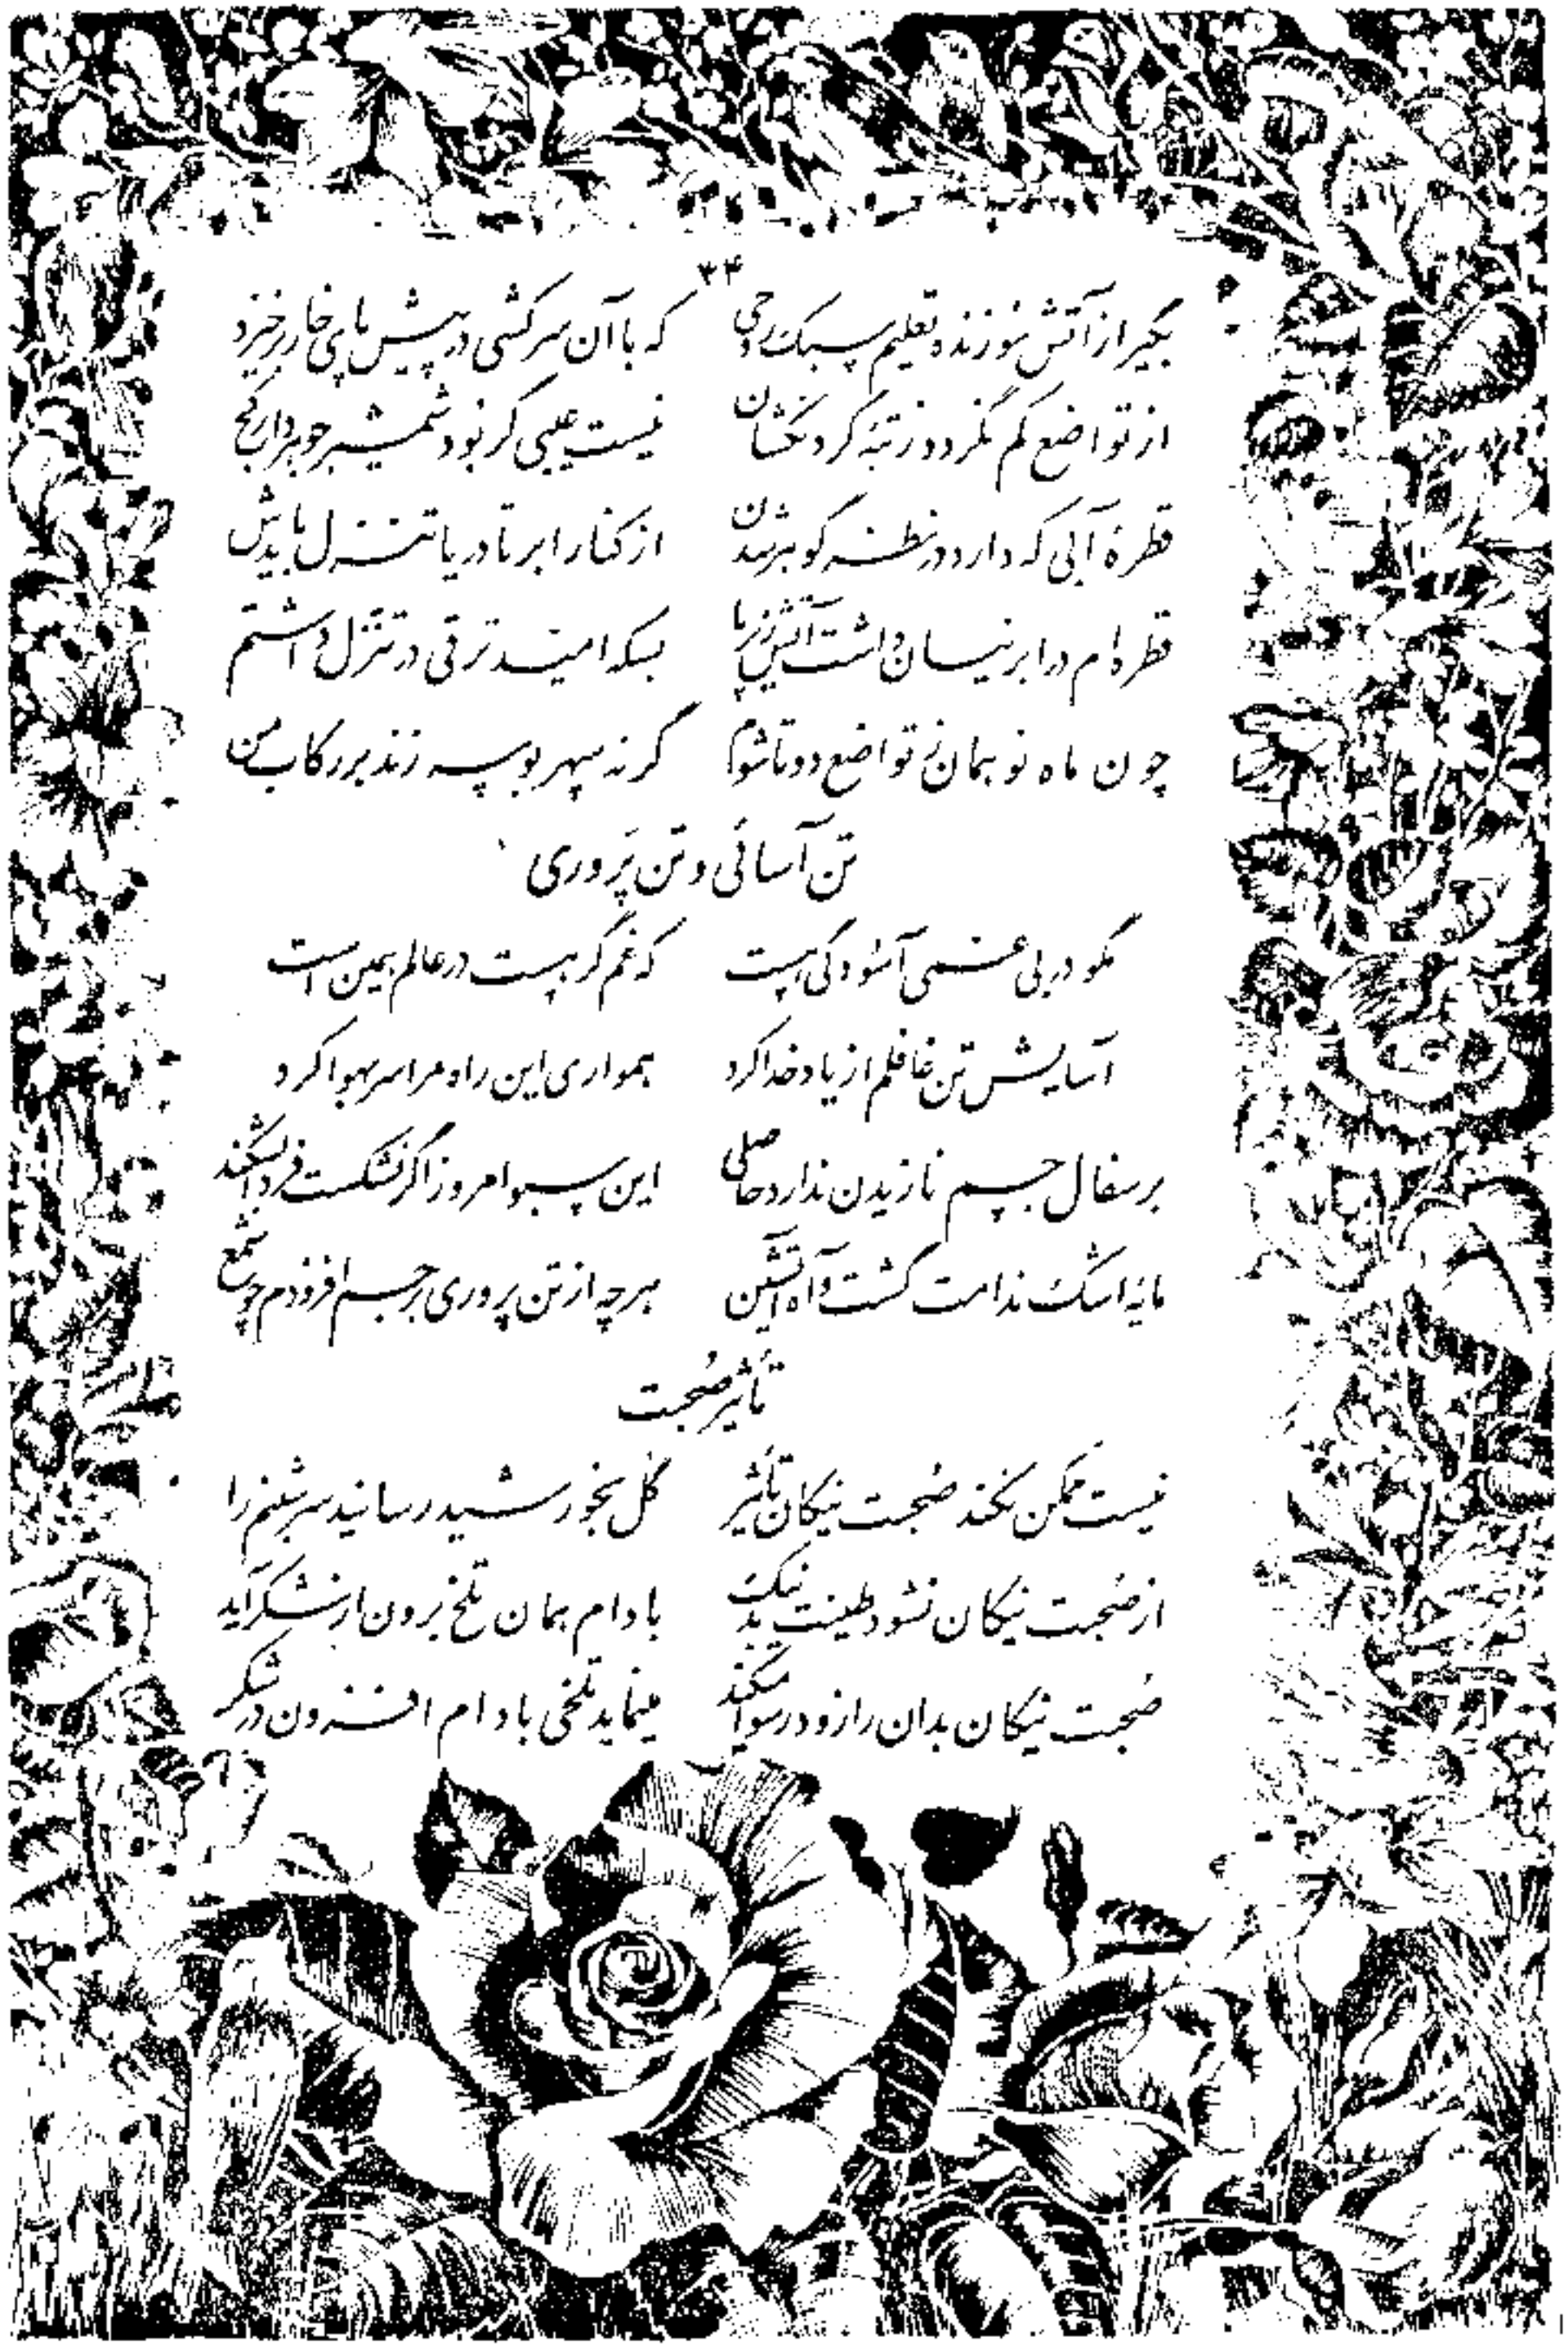 ۳۴
بگیر از آتش سوزنده تعلیم سبک روحی که با آن سرکشی در پیش پای خار برخیزد
از تواضع کم نگردد رتبهٔ گردنکشان نیست عیبی گر بود شمشیر جوهردار کج
قطرهٔ آبی که دارد در نظر گوهر شدن از کنار ابر تا دریا تنزل بایدش
قطره‌ام در ابر نیسان داشت آتش زیر پا بسکه امید ترقی در تنزل داشتم
چون ماه نو همان ز تواضع دو تا شوم گر نه سپهر بوسه زند بر رکاب من
تن آسائی و تن پروری
مگو در بی غمی آسودگی هست که غم گر هست در عالم همین است
آسایش تن غافلم از یاد خدا کرد همواری این راه مرا سر بهوا کرد
بر سفال جسم نازیدن ندارد حاصلی این سبو امروز اگر نشکست فردا بشکند
مایهٔ اشک ندامت گشت و آه آتشین هر چه از تن پروری بر جسم افزودم چو شمع
تأثیر صحبت
نیست ممکن نکند صحبت نیکان تأثیر گل بخورشید رسانید سر شبنم را
از صحبت نیکان نشود طینت بد نیک بادام همان تلخ برون از شکر آید
صحبت نیکان بدان را زود رسوا میکند مینماید تلخی بادام افزون در شکر